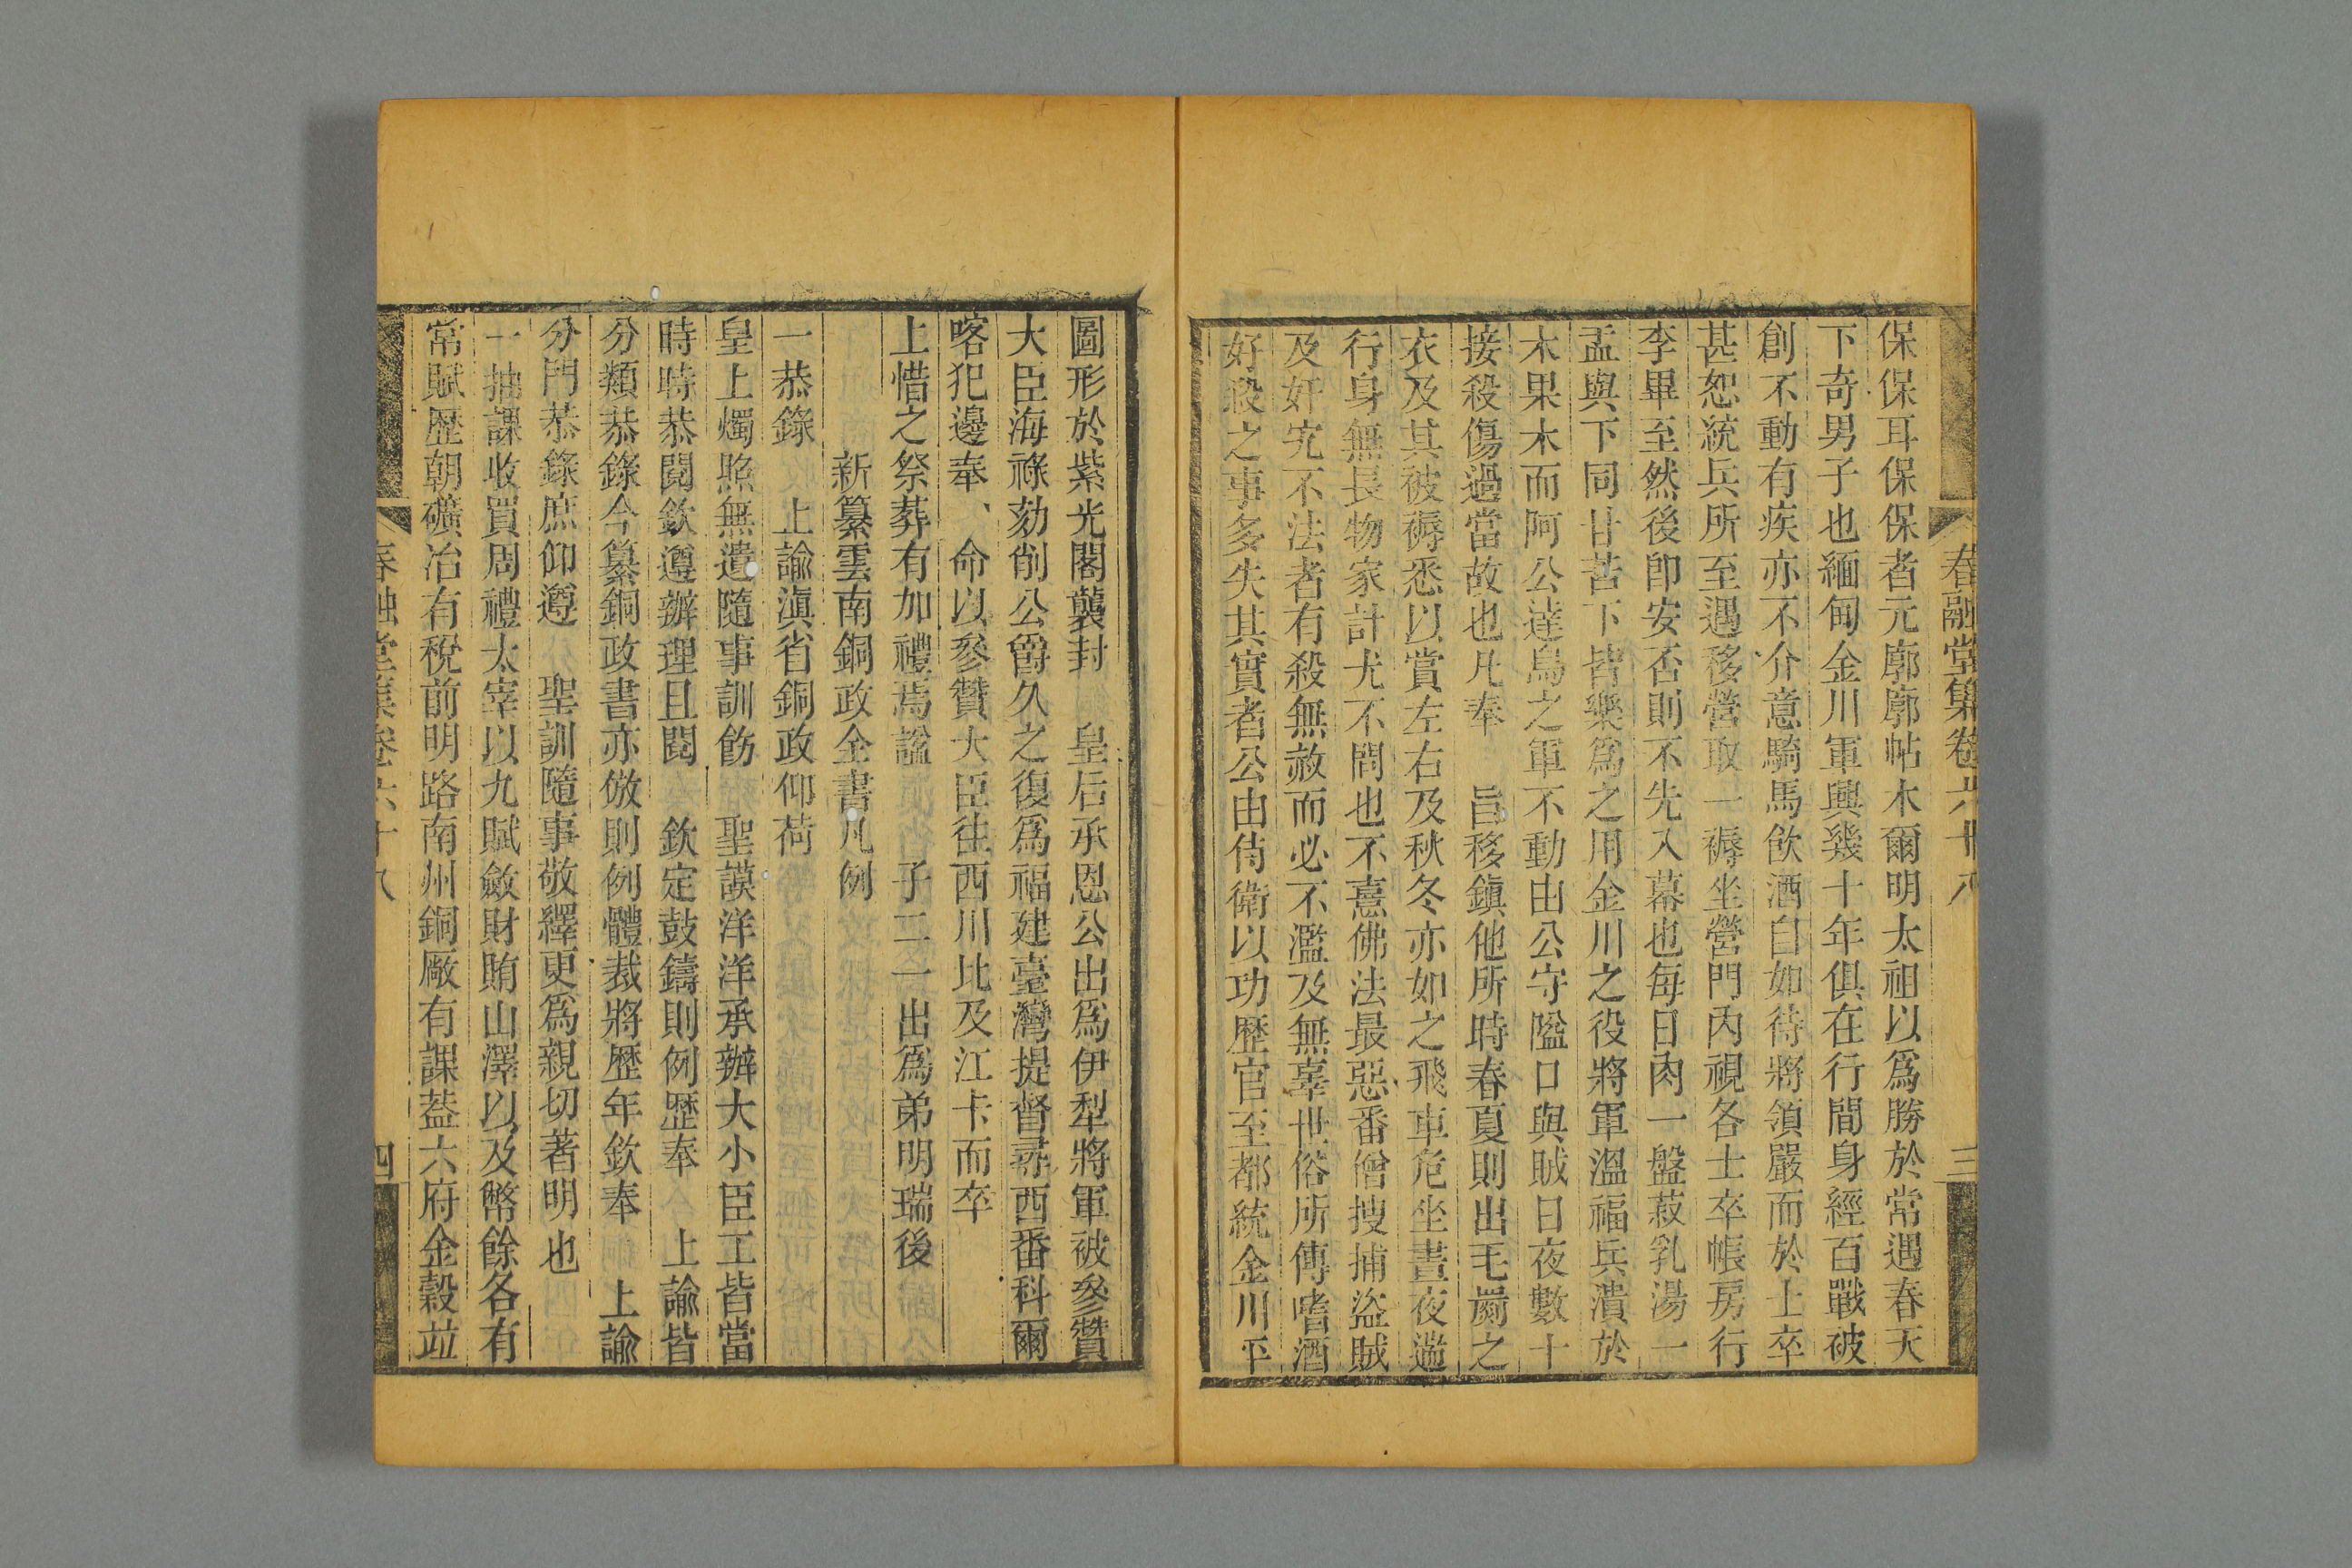 春融堂集卷六十八 三
保保耳保保者元廓廓帖木爾明太祖以爲勝於常遇春天
下奇男子也緬甸金川軍興幾十年俱在行間身經百戰被
創不動有疾亦不介意騎馬飲酒自如待將領嚴而於士卒
甚恕統兵所至遇移營取一褥坐營門内視各士卒帳房行
李畢至然後卽安否則不先入幕也每日肉一盤菽乳湯一
盂與下同甘苦下皆樂爲之用金川之役將軍溫福兵潰於
木果木而阿公達烏之軍不動由公守隘口與賊日夜數十
接殺傷過當故也凡奉 旨移鎭他所時春夏則出毛罽之
衣及其被褥悉以賞左右及秋冬亦如之飛車危坐晝夜遄
行身無長物家計尤不問也不憙佛法最惡番僧搜捕盜賊
及奸宄不法者有殺無赦而必不濫及無辜世俗所傳嗜酒
好殺之事多失其實者公由侍衛以功歷官至都統金川平
圖形於紫光閣襲封 皇后承恩公出爲伊犁將軍被參贊
大臣海祿劾削公爵久之復爲福建臺灣提督尋西番科爾
喀犯邊奉 命以參贊大臣往西川比及江卡而卒
上惜之祭葬有加禮焉諡 子二一出爲弟明瑞後
新纂雲南銅政全書凡例
一恭錄 上諭滇省銅政仰荷
皇上燭照無遺隨事訓飭 聖謨洋洋承辦大小臣工皆當
時時恭閱欽遵辦理且閱 欽定鼓鑄則例歷奉 上諭皆
分類恭錄今纂銅政書亦倣則例體裁將歷年欽奉 上諭
分門恭錄庶仰遵 聖訓隨事敬繹更爲親切著明也
一抽課收買周禮太宰以九賦斂財賄山澤以及幣餘各有
常賦歷朝礦冶有稅前明路南州銅厰有課葢六府金穀竝
春融堂集卷六十八 四